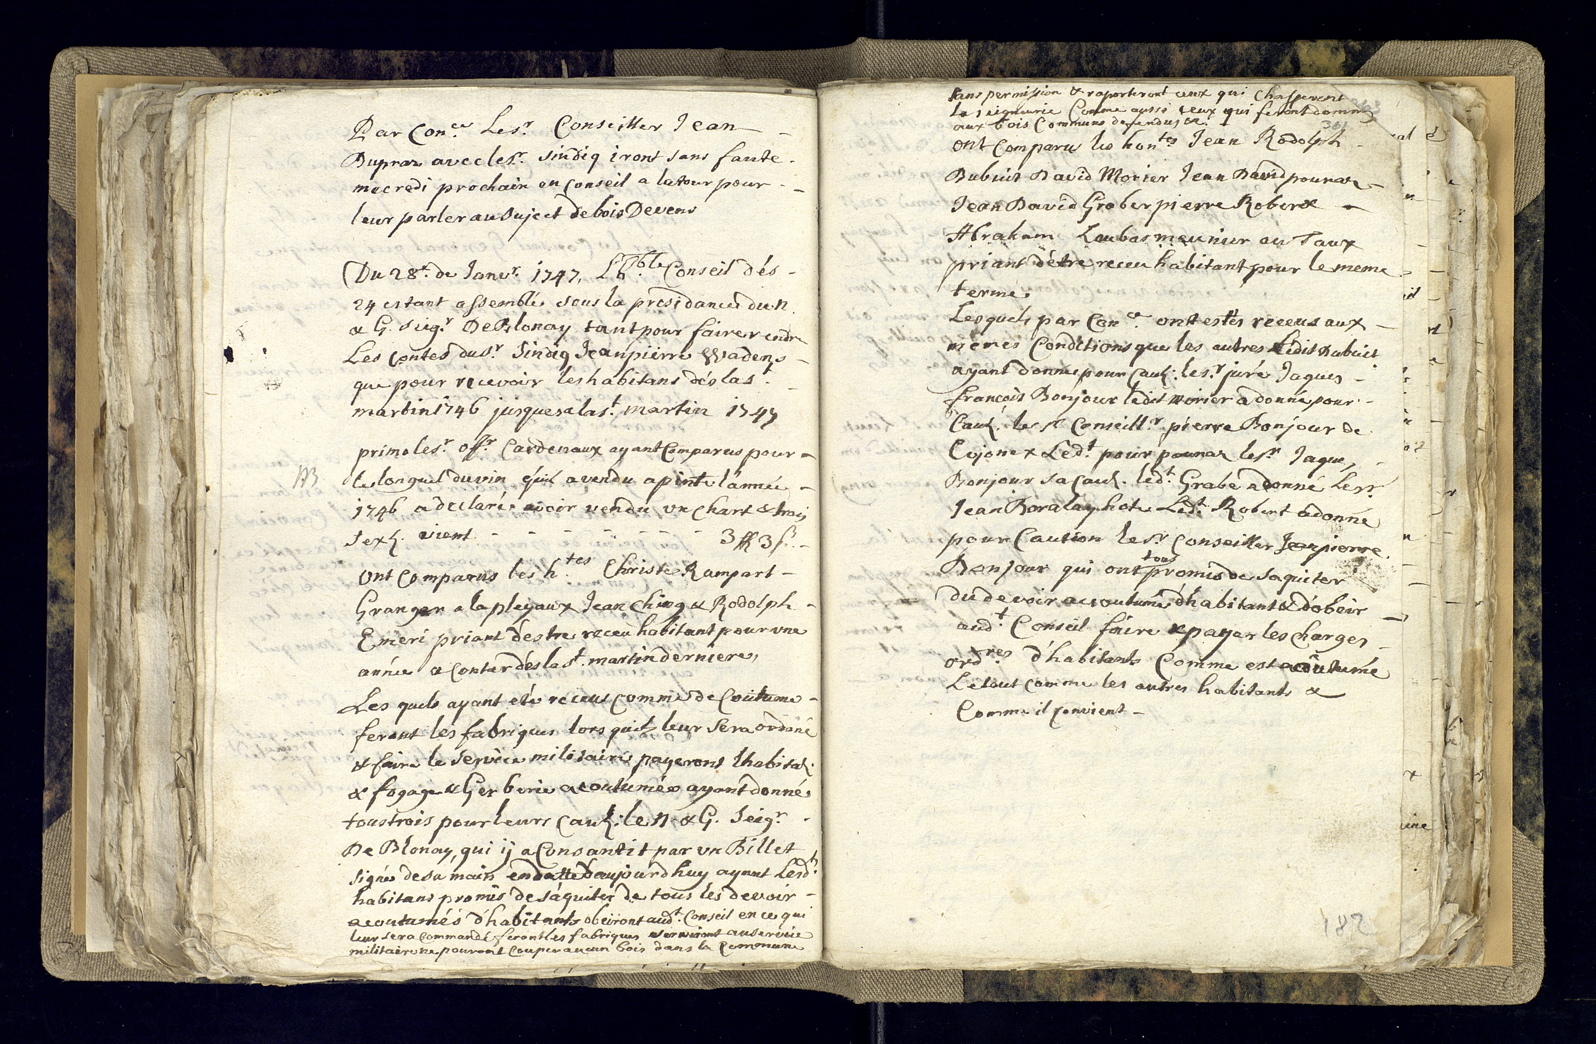 Par Con.ce Le sr. Conseiller Jean
Dupraz avec le sr. Sindiq iront sans faute
mecredi prochain en Conseil a latour pour
leur parler au Suject de bois Devens
Du 28e. de Janvr. 1747, L'hble Conseil des
24 estant assemblé sous la presidance du N.
& G. Seigr. De Blonay tant pour faire rendre
Les Contes du sr. Sindiq Jean pierre Wadens
que pour recevoir les habitans dès la st.
martin 1746 jusques a la st. martin 1747
primo le sr. offr. Cardenaux ayant Comparus pour
le longuel du vin qu'il a vendu a pinte l'année
1746 a declaré avoir vendu un Chart & trois
Sext. vient 3 ff 3 s.
ont Comparus les h.tes Christ Rampart
Granger a la pleyaux Jean Ching & Rodolph
Emeri priant d'estre receu habitant pour une
année a Conter dès la st. martin derniere,
Les quels ayant été receus comme de Coutume
feront les fabriques lors quil leur Sera ordonné
& faire le Service militaire payeront l'habitat.
& fogage & Gerberie acoutumées ayant donné
tous trois pour leurs Caut. le N. & G. Seigr.
De Blonay, qui ij a Consantit par un Billet
Signé de sa main en datte d'aujourd'huy ayant Lesd.
habitans promis de s'aquiter de tous les devoir
acoutumés d'habitants obeiront aud.t Conseil en ce qui
leur sera Commandé feront les fabriques serviront au service
militaire ne pouront couper aucun bois dans la Commune
sans permission & raporteront ceux qui Chasseront
la Seigneurie Comme aussi ceux qui feront domm
aux bois Communs defendus &c.
361
ont Comparu les hon.tes Jean Rodolph
Dubuit David Morier Jean David pounaz
Jean David Graber pierre Robert
Abraham Loubas meunier au Saux
priant d'être receu habitant pour le meme
terme
Lesquels par Con.ce ont estés receus aux
mêmes Conditions que les autres Ledit Dubuit
ayant donné pour Caut. le sr. juré Jaques
françois Bonjour ledit Morier a donné pour
Caut. le sr. Conseillr. pierre Bonjour de
Cojonex Led.t pour pounaz le sr. Jaque
Bonjour sa Caut. led.t Grabe a donné Le sr.
Jean Boralay hote Led.t Robert a donné
pour Caution le sr. Conseiller Jean pierre
Bonjour qui ont tous promis de saquiter
du devoir acoutumé d'habitant & d'obeir
aud.t Conseil faire & payer les charges
ord.res d'habitants Comme est acoutumé
Le tout comme les autres habitants &
Comme il Convient
182